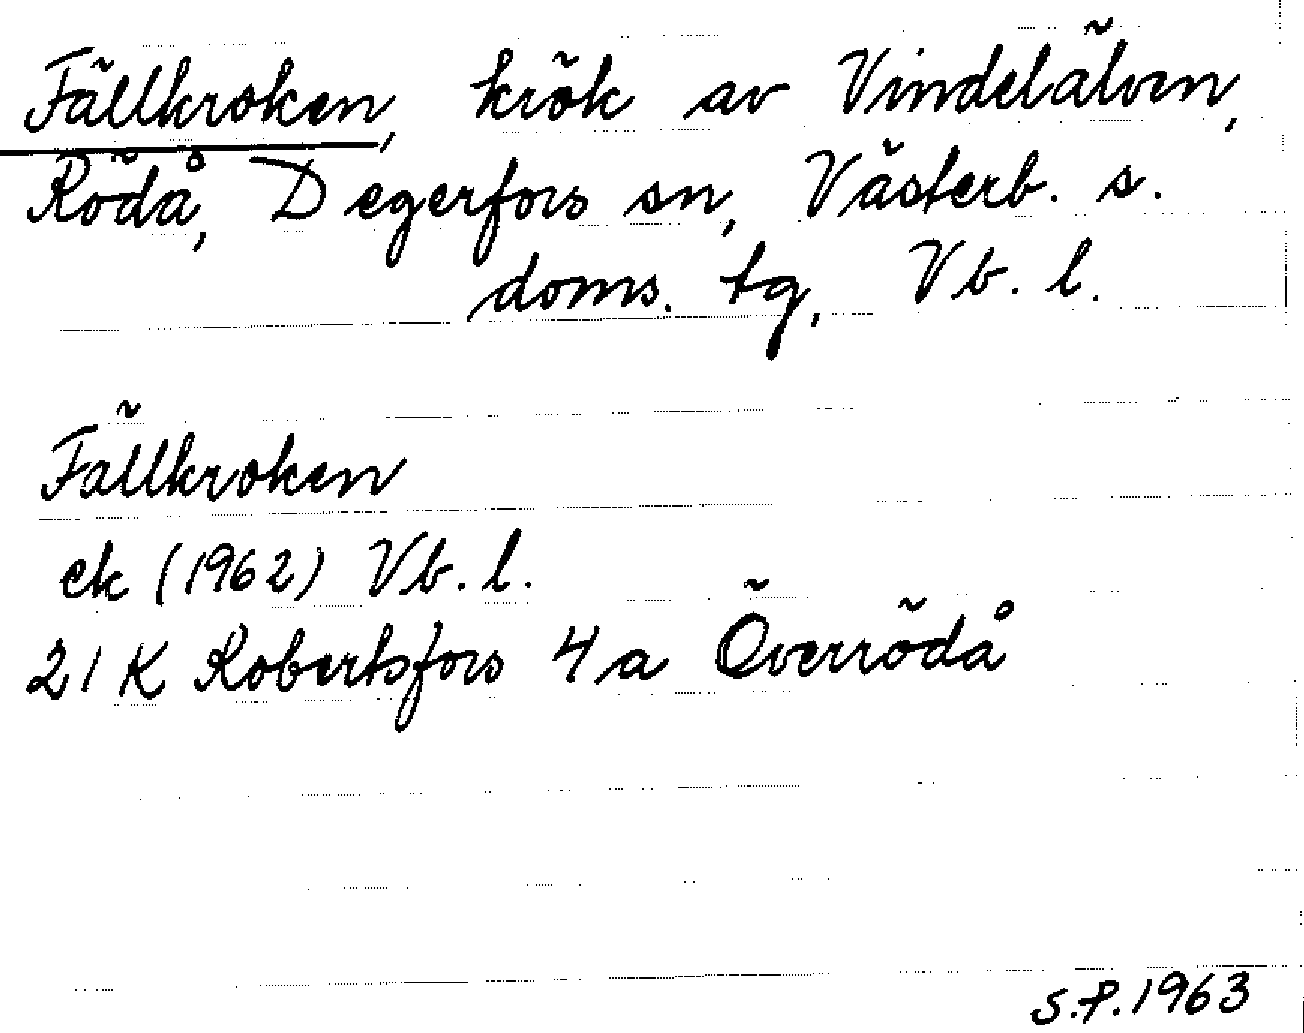 Fällkroken, krök av Vindelälven,
Rödå, Degerfors sn, Västerb. s.
doms. tg, Vb. l.
Fällkroken
ek (1962) Vb. l.
21 K Robertsfors 4a Överrödå
S.P. 1963